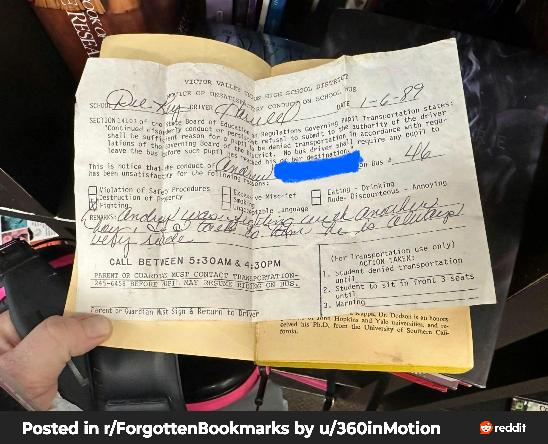 BOOK OF
RESEA
VICTOR VALLEY UNION HIGH SCHOOL DISTRICT
NOTICE OF UNSATISFACTORY CONDUCT ON SCHOOL BUS
SCHOOL DRIVER DATE 1-6-89
SECTION 14103 of the State Board of Education Regulations Governing Pupil Transportation states:
"Continued disorderly conduct or persistent refusal to submit to the authority of the driver
shall be sufficient reason for a pupil to be denied transportation in accordance with regu-
lations of the governing board of the district. No bus driver shall require any pupil to
leave the bus before such pupil has reached his or her destination."
This is notice that the conduct of Andrew on Bus # 46
has been unsatisfactory for the following reasons:
Violation of Safety Procedures Excessive Mischief Eating - Drinking
Destruction of Property Smoking Rude- Discourteous - Annoying
Fighting Unacceptable Language
REMARKS: Andrew was fighting with another
boy, I talk to him he is always
very rude.
CALL BETWEEN 5:30AM & 4:30PM
PARENT OR GUARDIAN MUST CONTACT TRANSPORTATION-
245-6458 BEFORE PUPIL MAY RESUME RIDING ON BUS.
(For Transportation use only)
ACTION TAKEN:
1. Student denied transportation
until
2. Student to sit in front 3 seats
until
3. Warning
Parent or Guardian Must Sign & Return to Driver
Kappa, Dr. Dodson is an honors
John Hopkins and Yale universities, and re-
ceived his Ph.D. from the University of Southern Cali-
fornia.
Posted in r/ForgottenBookmarks by u/360inMotion reddit